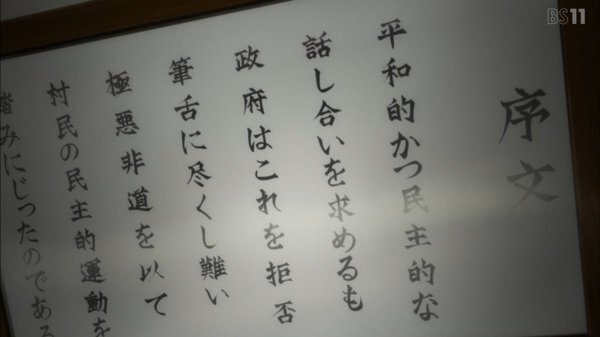 BS11
序文
平和的かつ民主的な
話し合いを求めるも
政府はこれを拒否
筆舌に尽くし難い
極悪非道を以て
村民の民主的運動を
踏みにじったのである